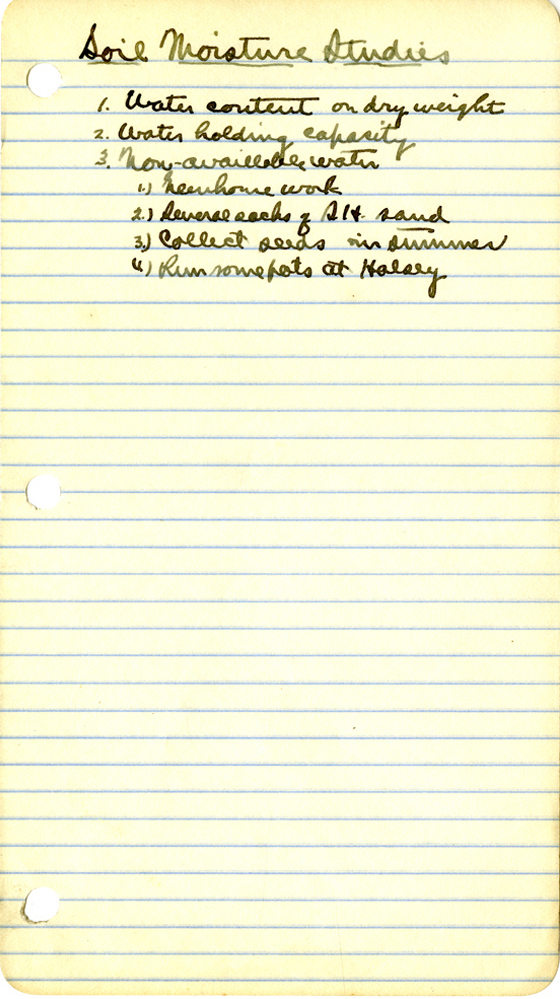 Soil Moisture Studies
1. Water content on dry weight
2. Water holding capacity
3. Non-available water
1.) Greenhouse work
2.) Several sacks of S.H. sand
3.) Collect seeds in summer
4.) Run some pots at Halsey